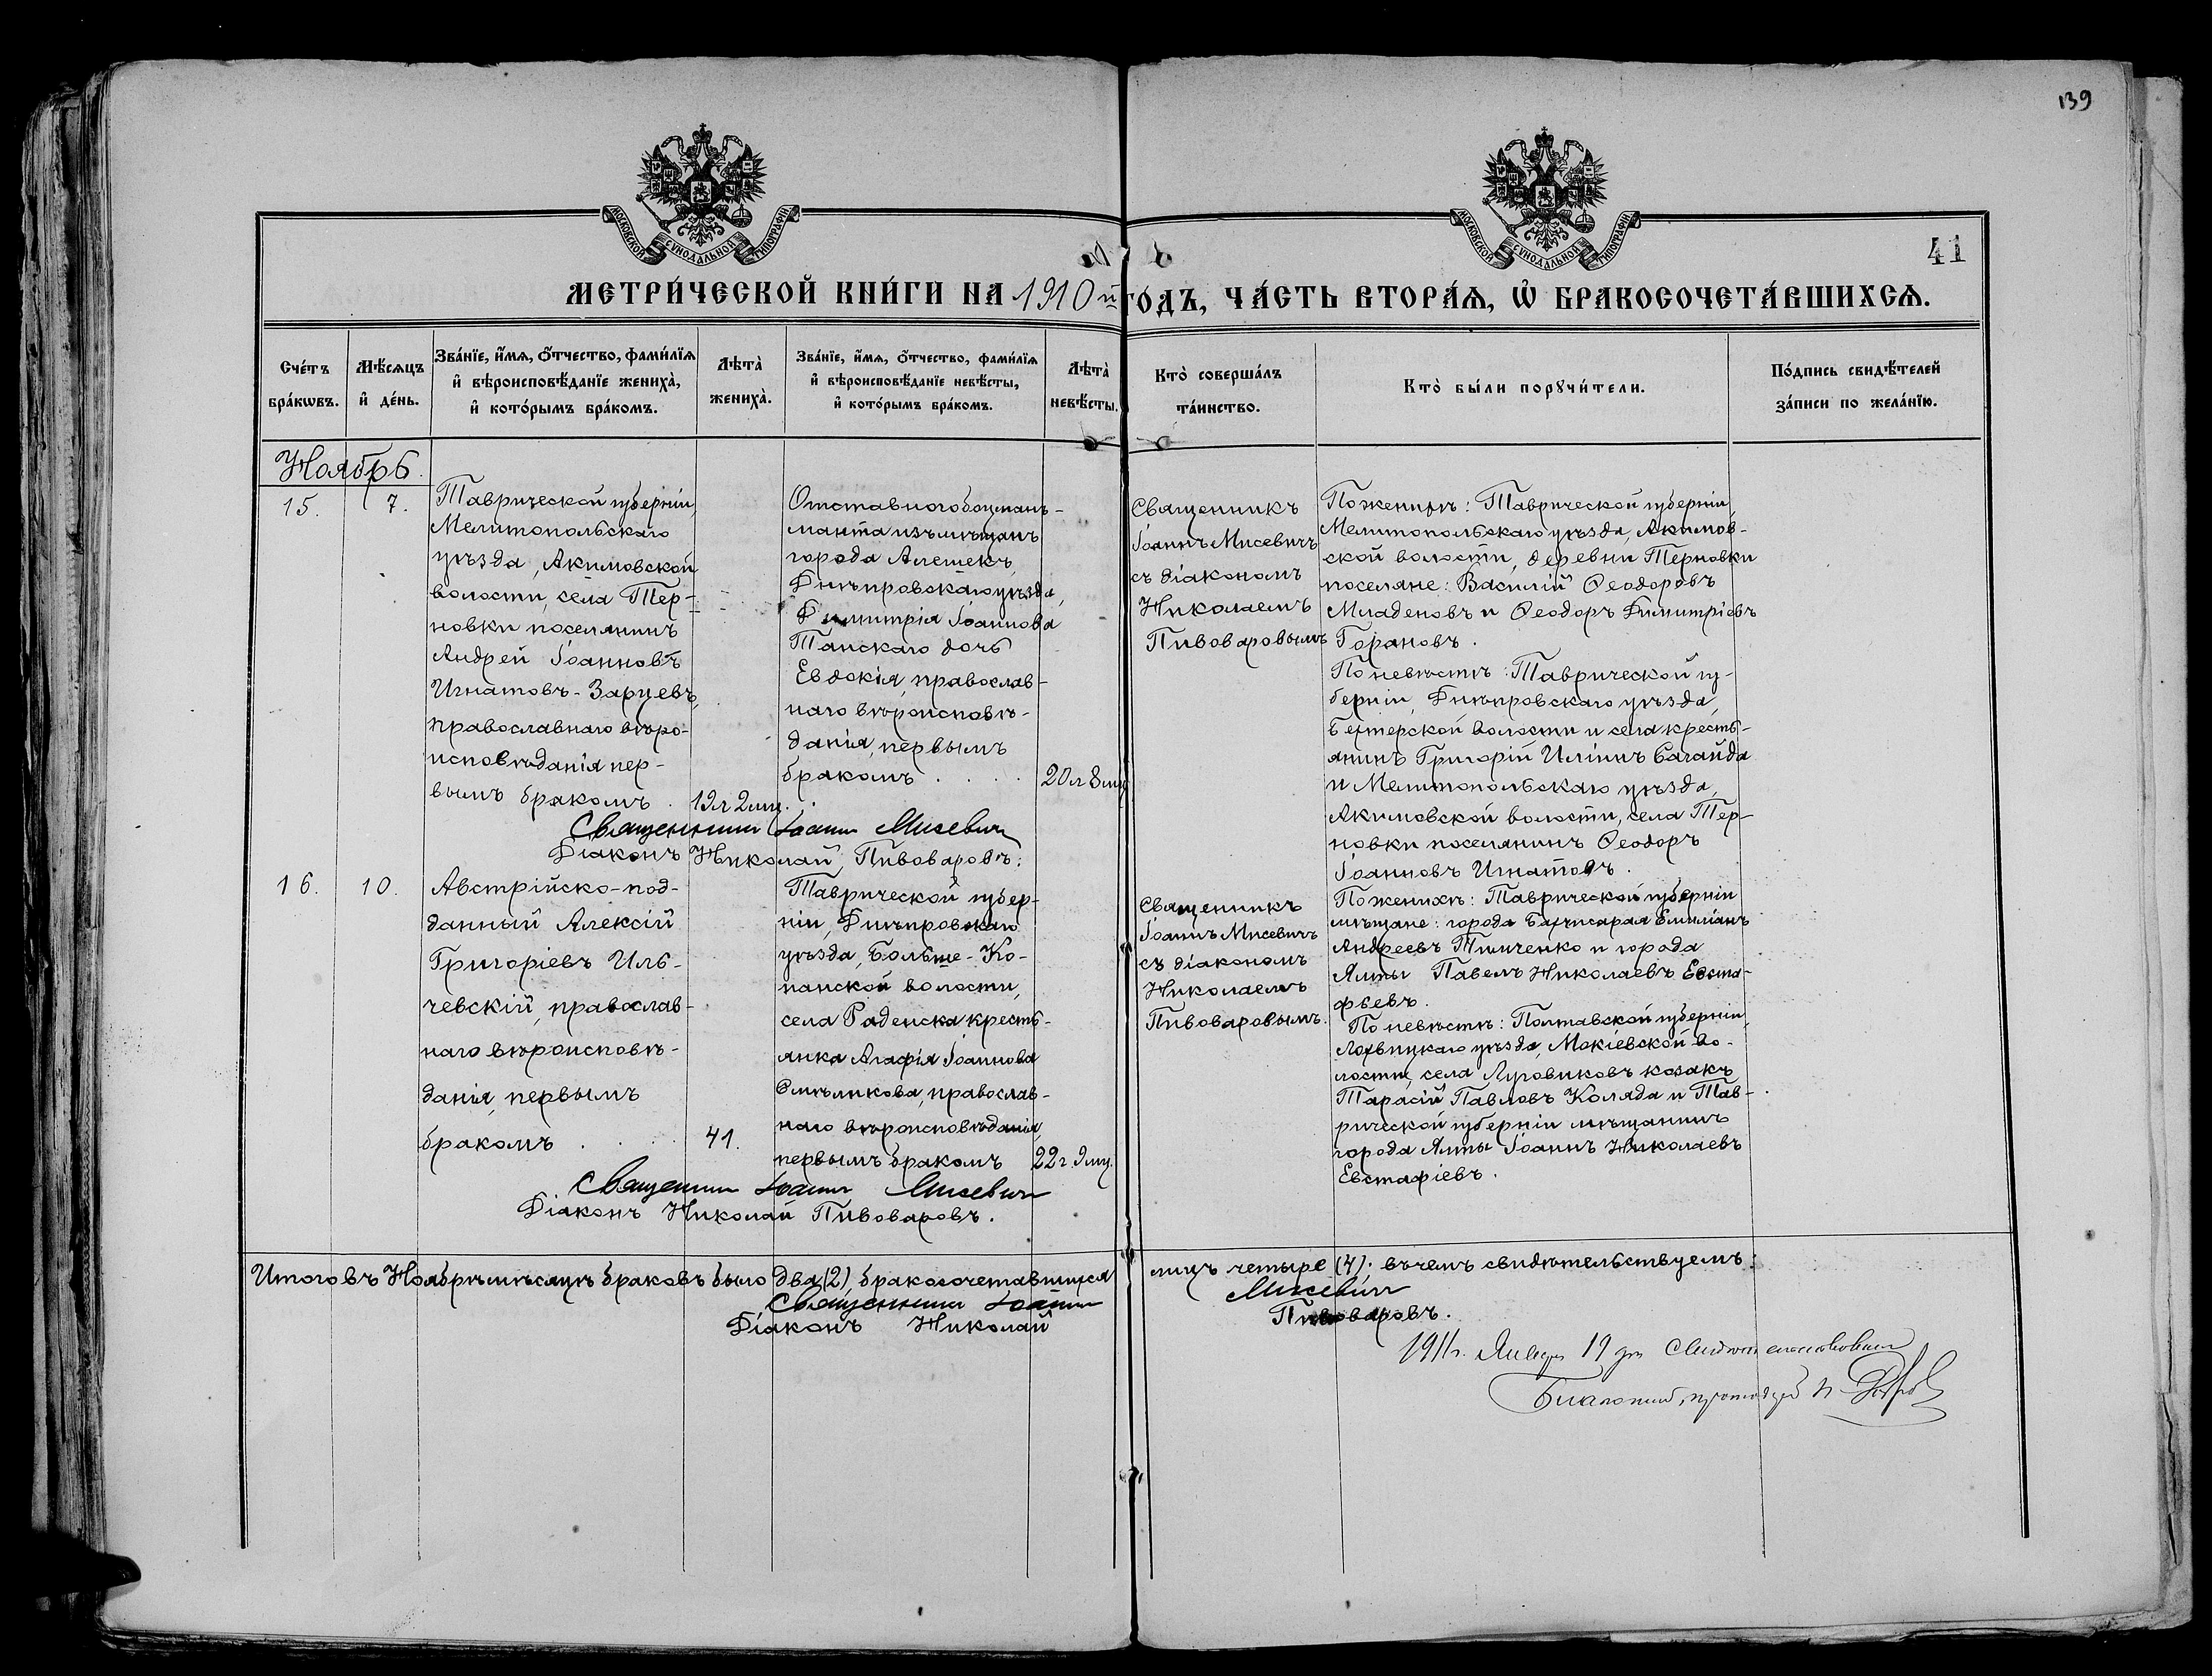 139
41
МОСКОВСКОЙ СѴНОДАЛЬНОЙ ТИПОГРАФІИ
МОСКОВСКОЙ СѴНОДАЛЬНОЙ ТИПОГРАФІИ
МЕТРИ́ЧЕСКОЙ КНИ́ГИ НА 1910й ГО́ДЪ, ЧА́СТЬ ВТОРА́Ѧ, Ѡ҆ БРАКОСОЧЕТА́ВШИХСѦ.
Сче́тъ бра́кѡвъ.
Мѣ́сѧцъ и҆ де́нь.
Зва́нїе, и҆́мѧ, ѻ҆́тчество, фами́лїѧ и҆ вѣроисповѣ́данїе жениха̀, и҆ кото́рымъ бра́комъ.
Лѣта̀ жениха̀.
Зва́нїе, и҆́мѧ, ѻ҆́тчество, фами́лїѧ и҆ вѣроисповѣ́данїе невѣ́сты, и҆ кото́рымъ бра́комъ.
Лѣта̀ невѣ́сты.
Кто̀ соверша́лъ та́инство.
Кто̀ бы́ли порꙋчи́тели.
По́дпись свидѣ́телей за́писи по жела́нїю.
Ноябрь.
15.
7.
Таврической губерніи,
Мелитопольскаго
уѣзда, Акимовской
волости, села Тер-
новки поселянинъ
Андрей Іоанновъ
Игнатовъ-Зарцевъ,
православнаго вѣро-
исповѣданія, пер-
вымъ бракомъ .
19л 2мц.
Отставного боцман-
мата изъ мѣщанъ
города Алешекъ,
Днѣпровскаго уѣзда,
Димитрія Іоаннова
Танскаго дочь
Евдокія, православ-
наго вѣроисповѣ-
данія, первымъ
бракомъ . . . .
20л 8мц
Священникъ
Іоаннъ Мисевичъ
съ діакономъ
Николаемъ
Пивоваровымъ
По женихѣ: Таврической губерніи,
Мелитопольскаго уѣзда, Акимов-
ской волости, деревни Терновки
поселяне: Василій Ѳеодоровъ
Младеновъ и Ѳеодоръ Димитріевъ
Горановъ.
По невѣстѣ: Таврической гу-
берніи, Днѣпровскаго уѣзда,
Бехтерской волости и села кресть-
янинъ Григорій Иліинъ Багайда
и Мелитопольскаго уѣзда,
Акимовской волости, села Тер-
новки поселянинъ Ѳеодоръ
Іоанновъ Игнатовъ.
Священникъ Іоаннъ Мисевичъ
Діаконъ Николай Пивоваровъ.
16.
10.
Австрійско-под-
данный Алексій
Григоріевъ Иль-
чевскій, православ-
наго вѣроисповѣ-
данія, первымъ
бракомъ . . .
41.
Таврической губер-
ніи, Днѣпровскаго
уѣзда, Больше-Ко-
панской волости,
села Раденска кресть-
янка Агафія Іоаннова
Омѣликова, православ-
наго вѣроисповѣданія,
первымъ бракомъ
22г 9мц.
Священникъ
Іоаннъ Мисевичъ
съ діакономъ
Николаемъ
Пивоваровымъ.
По женихѣ: Таврической губерніи
мѣщане: города Бахчисарая Емиліанъ
Андреевъ Тимченко и города
Ялты Павелъ Николаевъ Евста-
фьевъ.
По невѣстѣ: Полтавской губерніи,
Лохвицкаго уѣзда, Мокіевской во-
лости, села Луговиковъ козакъ
Тарасій Павловъ Коляда и Тав-
рической губерніи мѣщанинъ
города Ялты Іоаннъ Николаевъ
Евстафіевъ.
Священникъ Іоаннъ Мисевичъ
Діаконъ Николай Пивоваровъ.
Итого въ Ноябрѣ мѣсяцѣ браковъ было два (2), бракосочетавшихся лицъ четыре (4); въ чемъ свидѣтельствуемъ:
Священникъ Іоаннъ Мисевичъ
Діаконъ Николай Пивоваровъ.
1911г. Января 19 дня